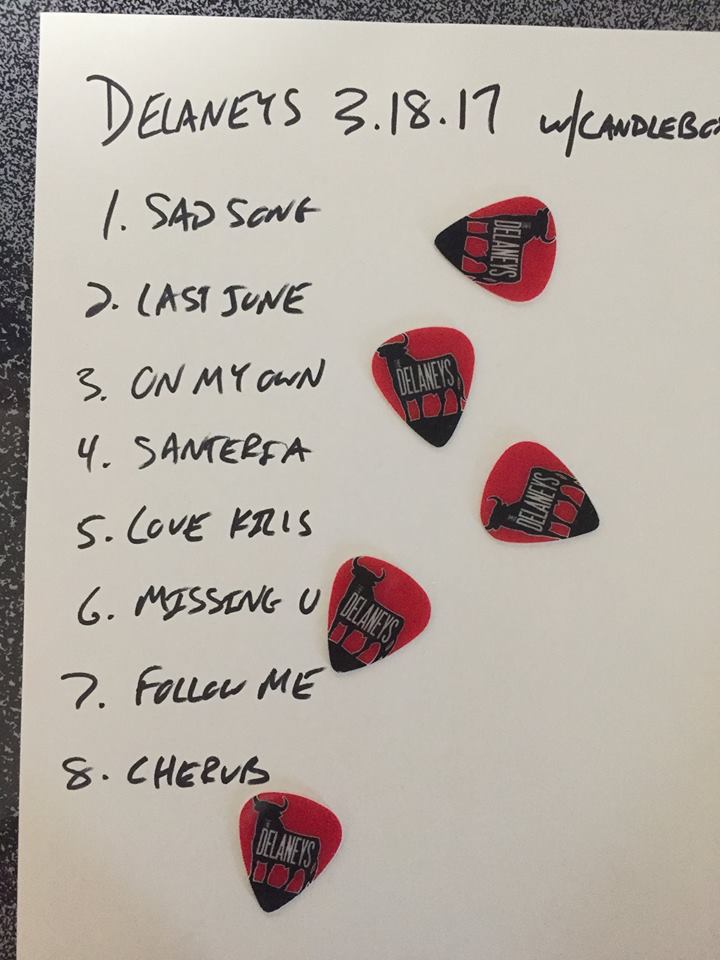 DELANEYS 3.18.17 w/CANDLEBOX
1. SAD SONG
THE DELANEYS
2. LAST JUNE
3. ON MY OWN
THE DELANEYS
4. SANTERIA
5. LOVE KILLS
THE DELANEYS
6. MISSING U
THE DELANEYS
7. FOLLOW ME
8. CHERUB
THE DELANEYS